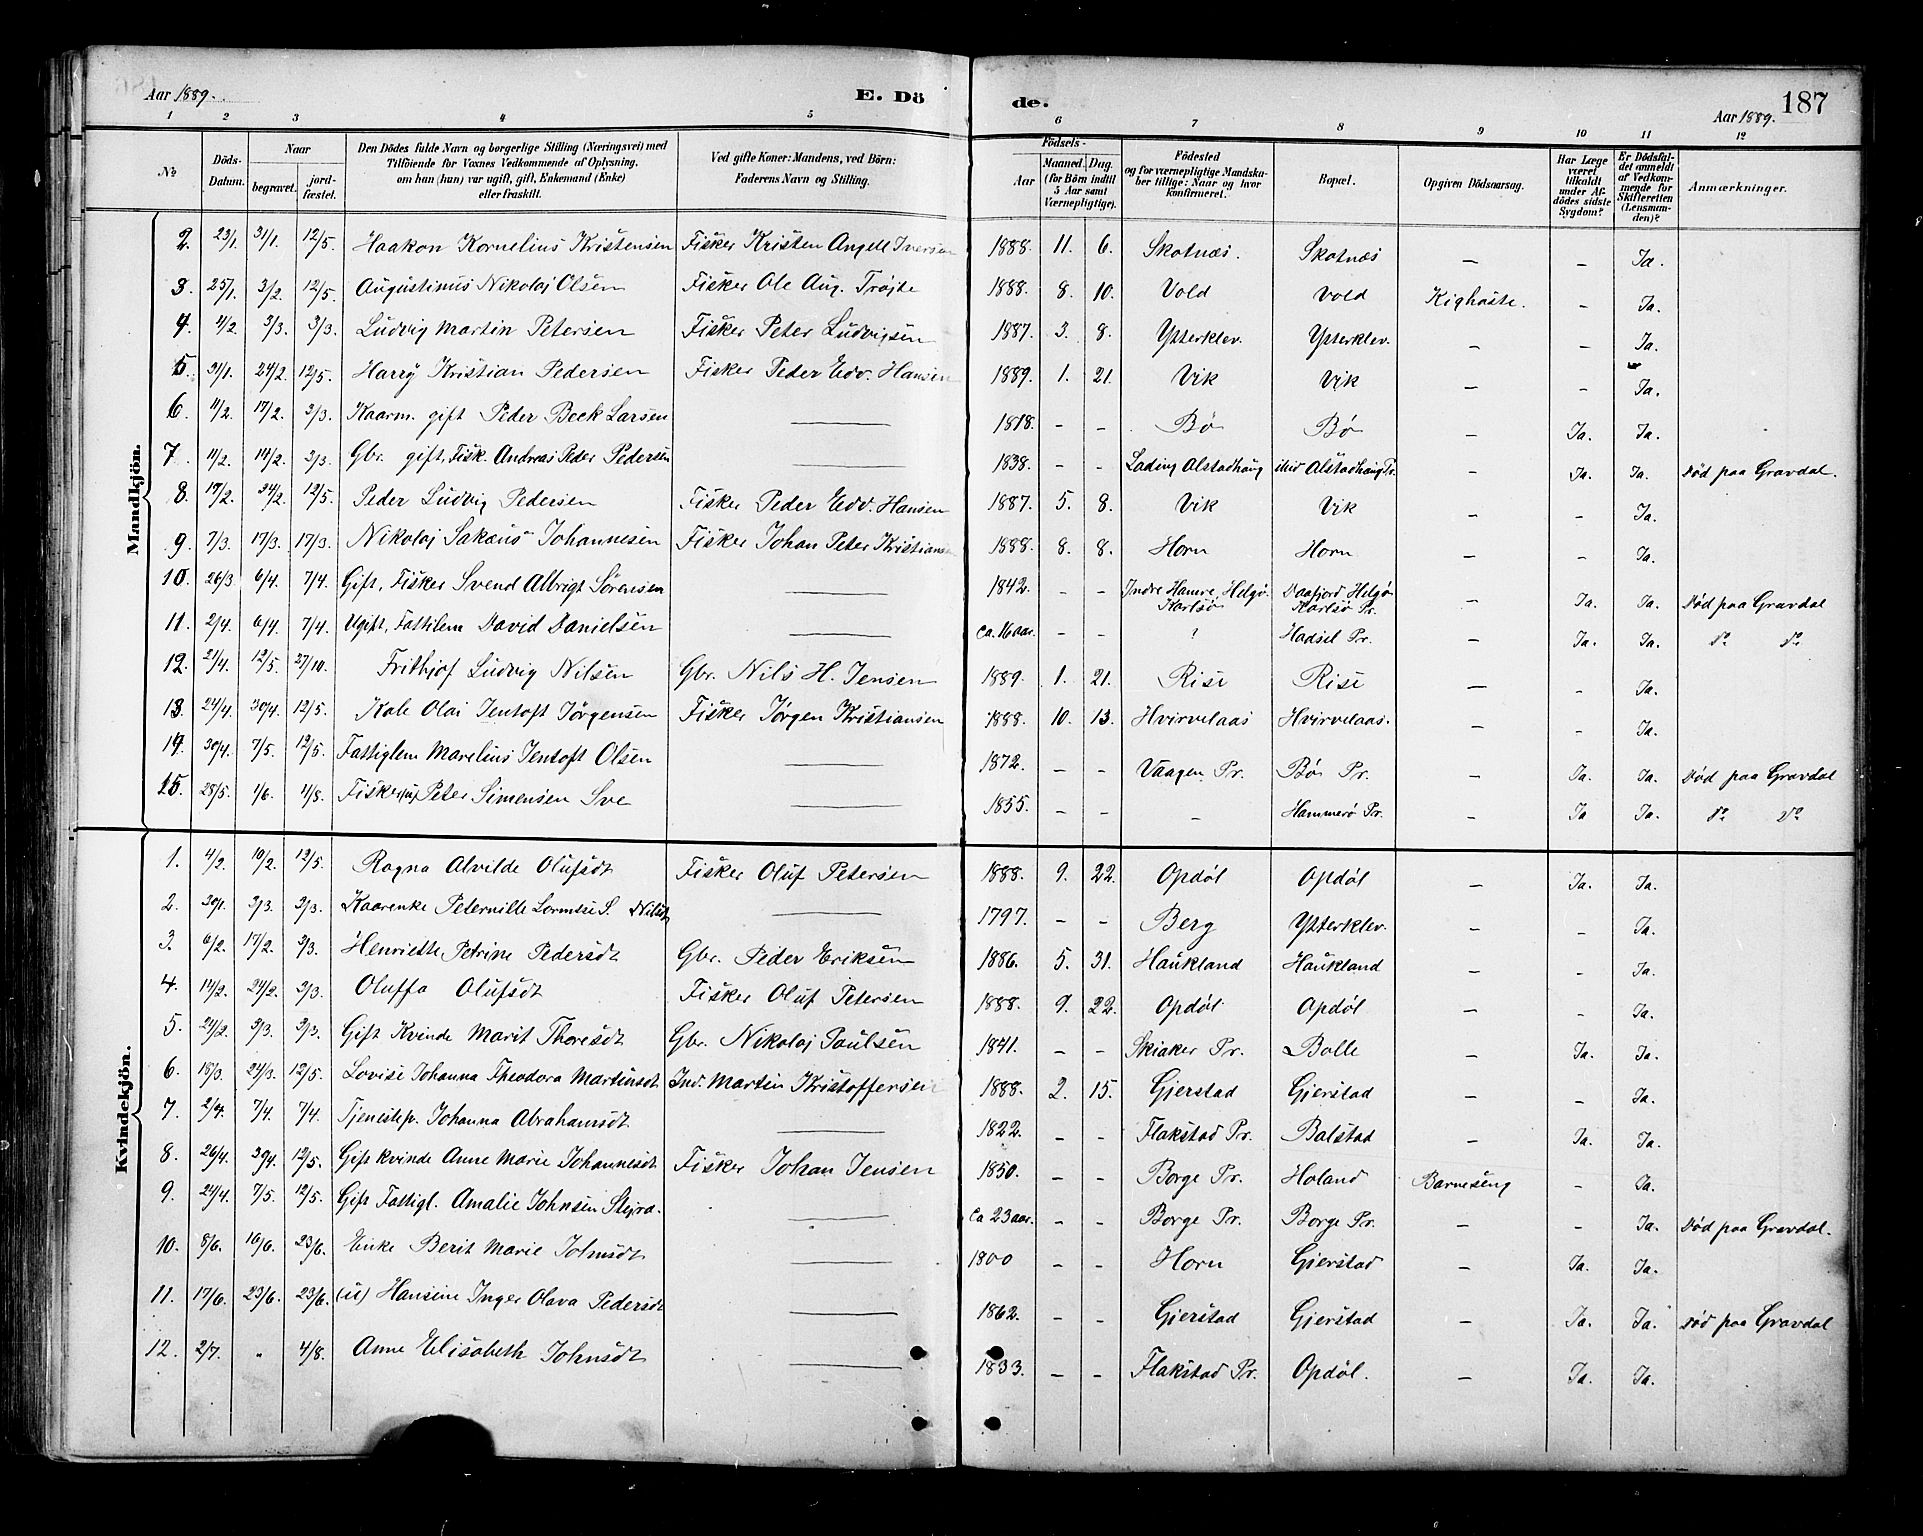 Aar 1889.
E. Dö
de.
Aar 1889.
187
1 2 3 4 5 6 7 8 9 10 11 12
No
Döds-Datum.
Naar
begravet.
jord-fæstet.
Den Dödes fulde Navn og borgerlige Stilling (Næringsvei) med
Tilföiende for Voxnes Vedkommende af Oplysning,
om han (hun) var ugift, gift, Enkemand (Enke)
eller fraskilt.
Ved gifte Koner: Mandens, ved Börn:
Faderens Navn og Stilling.
Födsels-
Aar
Maaned. Dag.
(for Börn indtil
5 Aar samt
Værnepligtige).
Födested
og for værnepligtige Mandska-
ber tillige: Naar og hvor
konfirmeret.
Bopæl.
Opgiven Dödsaarsag.
Har Læge
været
tilkaldt
under Af-
dödes sidste
Sygdom?
Er Dödsfal-
det anmeldt
af Vedkom-
mende for
Skifteretten
(Lensman-
den)?
Anmærkninger.
Mandkjön.
2. 23/1. 31/1. 12/5. Haakon Kornelius Kristensen Fisker Kristen Angell Iversen 1888. 11. 6. Skotnæs. Skotnæs – – Ja.
3. 25/1. 3/2. 12/5. Augustinus Nikolaj Olsen Fisker Ole Aug. Trøjte 1888. 8. 10. Vold Vold Kighoste. – Ja.
4. 4/2. 3/3. 3/3. Ludvig Martin Petersen Fisker Peter Ludvigsen 1887. 3. 8. Ytterklev. Ytterklev. – – Ja.
5. 31/1. 24/2. 12/5. Harry Kristian Pedersen Fisker Peder Edv. Hansen 1889. 1. 21. Vik Vik – – Ja.
6. 11/2. 17/2. 3/3. Kaarm. gift Peder Beck Larsen — 1818. – – Bø Bø – Ja. Ja.
7. 11/2. 14/2. 3/3. Gbr. gift, Fisk. Andreas Peder Pedersen — 1838. – – Lading Alstadhaug Alstadhaug Pr. – Ja. Ja. Død paa Gravdal.
8. 19/2. 24/2. 12/5. Peder Ludvig Pedersen Fisker Peder Edv. Hansen 1887. 5. 8. Vik Vik – – Ja.
9. 7/3. 17/3. 17/3. Nikolaj Sakæus Johannesen Fisker Johan Peter Kristiansen 1888. 8. 8. Horn Horn – – Ja.
10. 26/3. 6/4. 7/4. Gift, Fisker Svend Albrigt Sörensen — 1842. – – Indre Hamre, Helgø Karlsø Daafjord Helgø Karlsø Pr. – Ja. Ja. Død paa Gravdal
11. 2/4. 6/4. 7/4. Ugift, Fattilem David Danielsen — ca. 16 aar. – – ? Hadsel Pr. – Ja. Ja. do do
12. 21/4. 12/5. 27/10. Frithjof Ludvig Nilsen Gbr. Nils H. Jensen 1889. 1. 21. Rise Rise – – Ja.
13. 24/4. 30/4. 12/5. Kole Olai Jentoft Jørgensen Fisker Jørgen Kristiansen 1888. 10. 13. Hvirvelaas Hvirvelaas. – – Ja.
14. 30/4. 7/5. 12/5. Fattiglem Marelius Jentoft Olsen — 1872. – – Vaagen Pr. Bø Pr. – Ja. Ja. Død paa Gravdal
15. 28/5. 1/6. 4/8. Fisker (u) Peter Simensen Sve — 1855. – – – Hammerø Pr. – Ja Ja. do do
Kvindekjön.
1. 4/2. 10/2. 12/5. Ragna Alvilde Olufsdt Fisker Oluf Petersen 1888. 9. 22. Opdøl Opdøl – Ja. Ja.
2. 30/1. 3/3. 3/3. Kaarenke Peternille S. Nilsdt — 1797. – – Berg Ytterklev. – – Ja.
3. 6/2. 17/2. 3/3. Henriette Petrine Pedersdt Gbr. Peder Eriksen 1886. 5. 31. Haukland Haukland – – Ja.
4. 14/2. 24/2. 3/3. Oluffa Olufsdt Fisker Oluf Petersen 1888. 9. 22. Opdøl Opdøl – – Ja.
5. 24/2. 3/3. 3/3. Gift Kvinde Marit Thoresdt Gbr. Nikolaj Paulsen 1841. – – Skiaker Pr. Bolle – Ja. Ja.
6. 18/3. 24/3. 12/5. Lovise Johanna Theodora Martinsdt. Ind. Martin Kristoffersen 1888. 2. 15. Gjerstad Gjerstad – – Ja.
7. 2/4. 7/4. 7/4. Tjenestep. Johanna Abrahamsdt — 1822. – – Flakstad Pr. Balstad – Ja. Ja.
8. 26/4. 30/4. 12/5. Gift kvinde Anne Marie Johannesdt Fisker Johan Jensen 1850. – – Borge Pr. Holand Barneseng – Ja.
9. 24/4. 7/5. 12/5. Gift Fattigl. Amalie Johnsen — ca 23 aar. – – Borge Pr. Borge Pr. – – Ja. Død paa Gravdal.
10. 8/6. 16/6. 23/6. Enke Berit Marie Johnsdt — 1800 – – Horn Gjerstad – Ja. Ja.
11. 17/6. 23/6. 23/6. (u) Hansine Inger Olava Pedersdt — 1862. – – Gjerstad Gjerstad – Ja. Ja. Død paa Gravdal
12. 2/7. " 4/8. Anne Elisabeth Johnsdt — 1833. – – Flakstad Pr. Opdøl. – Ja. Ja.